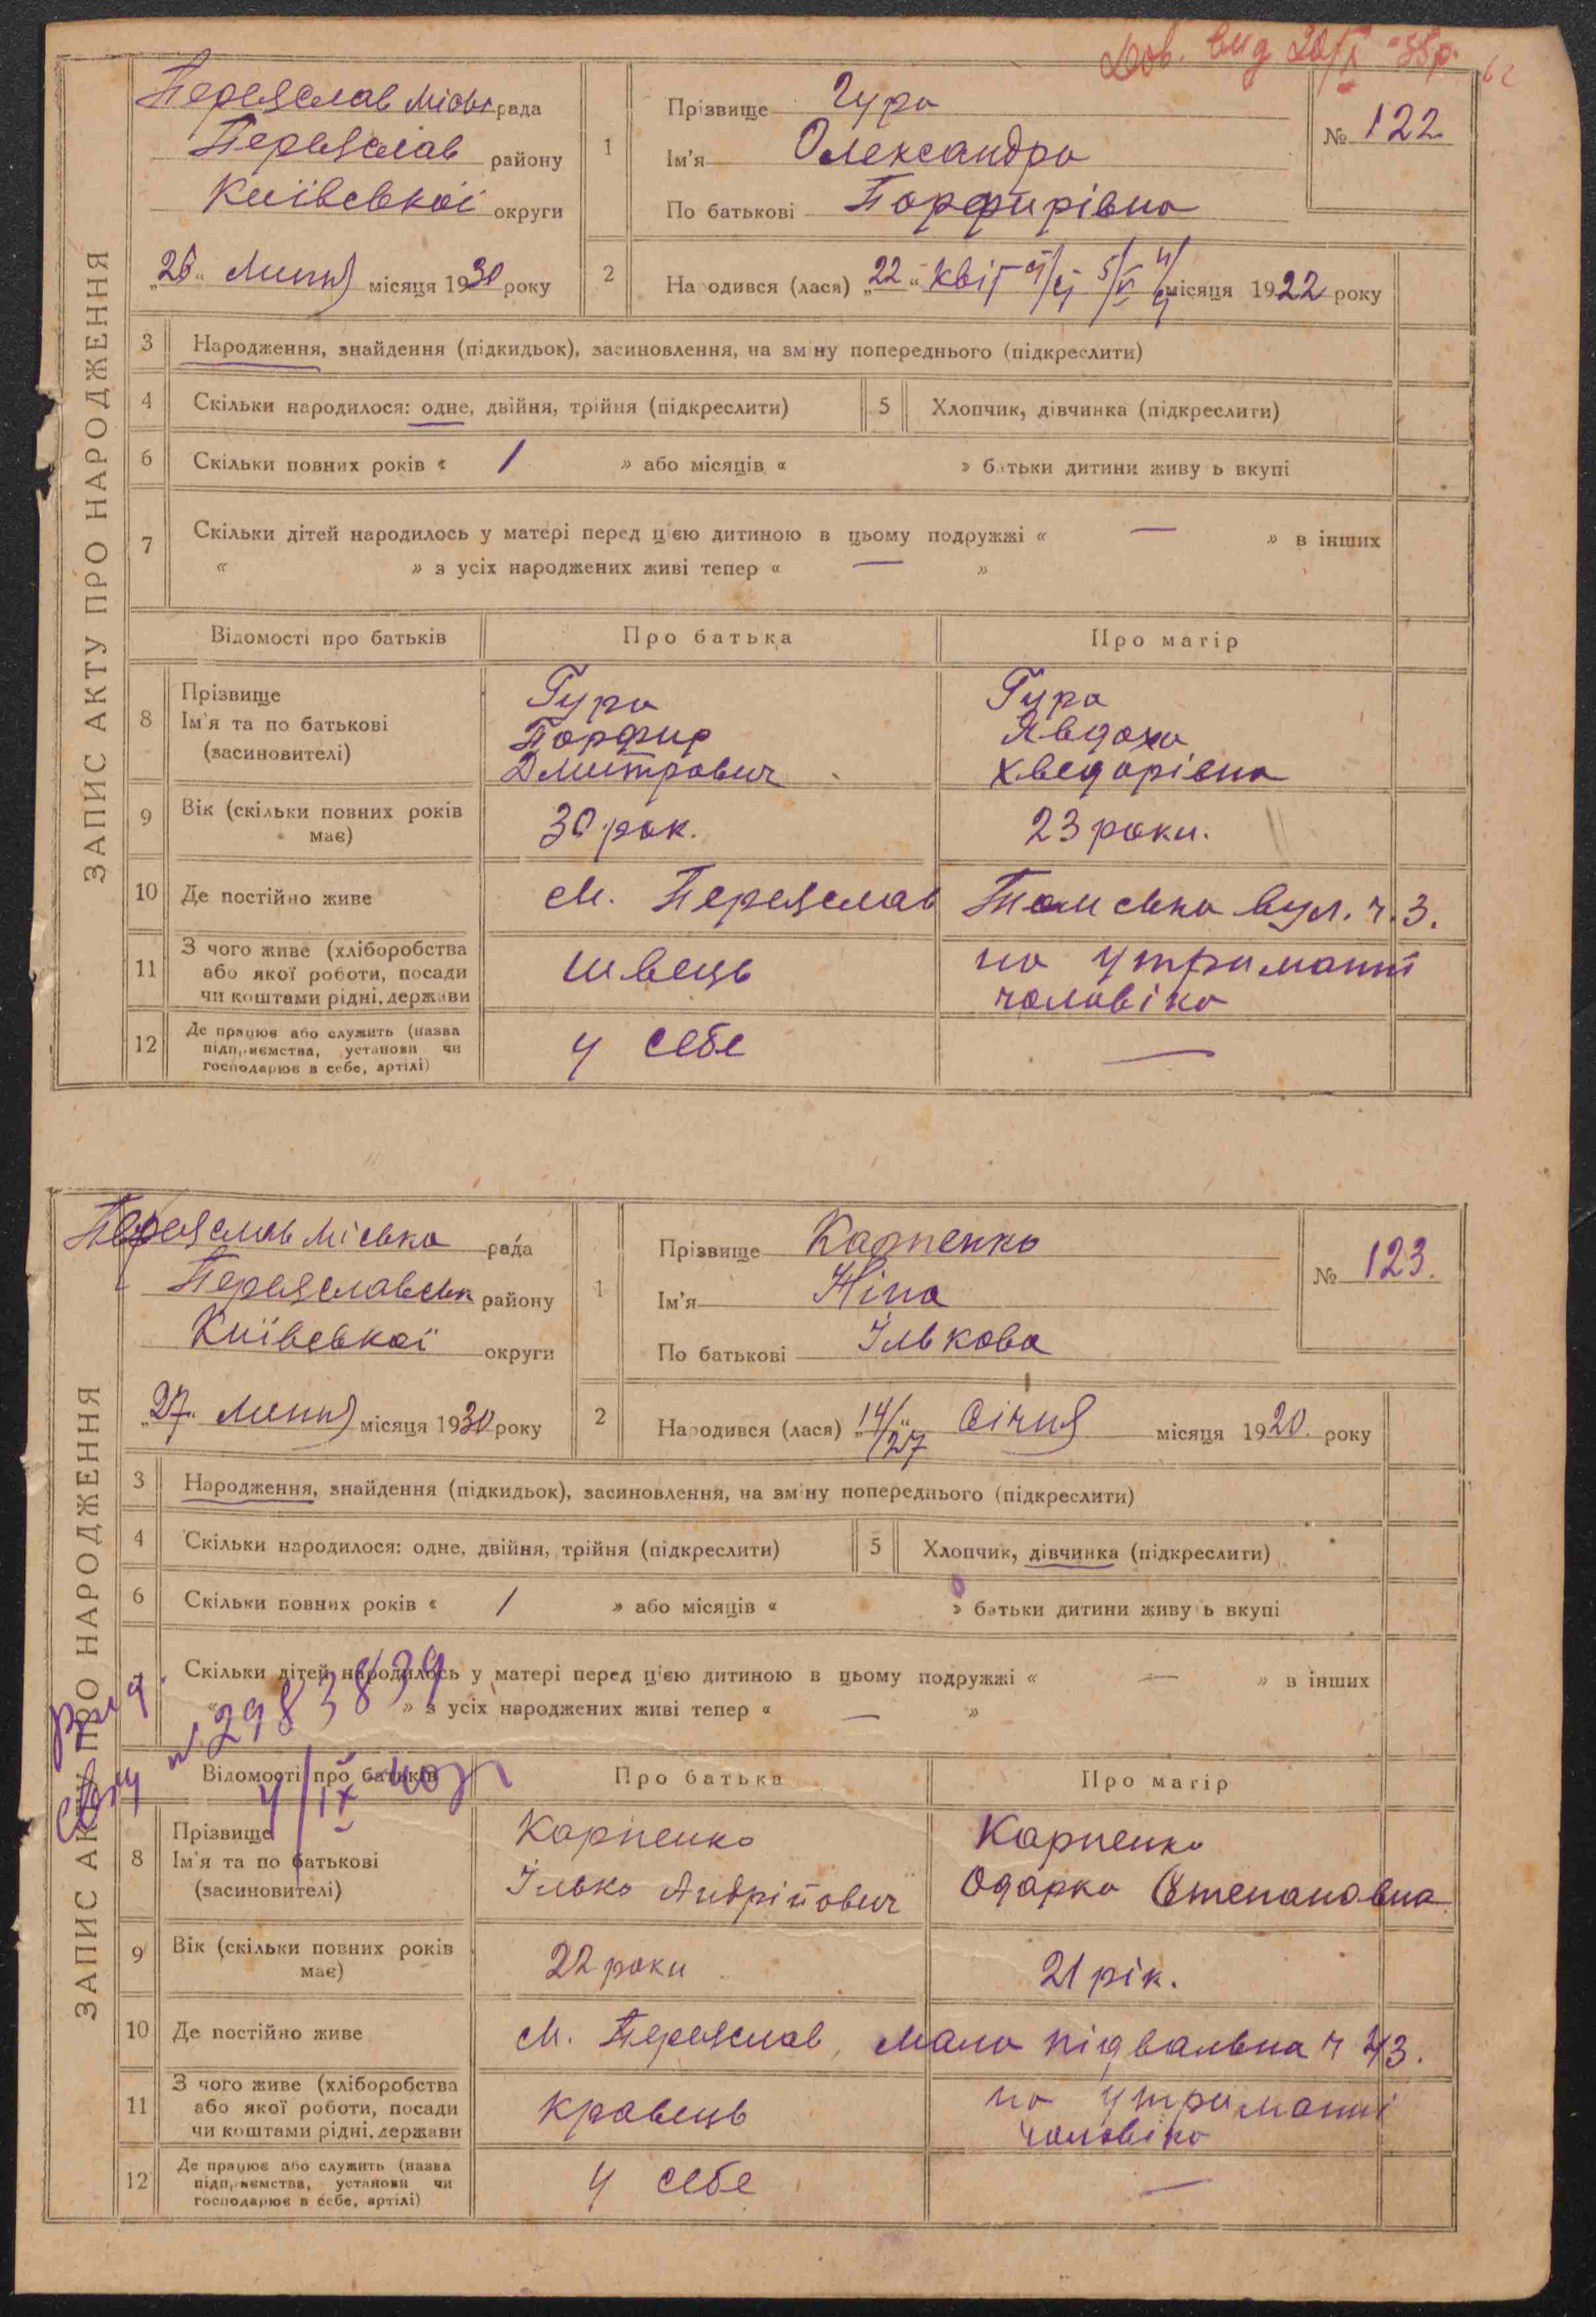 Дов. вид 20/X 38р.
62
ЗАПИС АКТУ ПРО НАРОДЖЕННЯ
Переяслав міськ рада
Переяслав району
Київської округи
„26“ Липня місяця 1930 року
1
Прізвище Гура
Ім'я Олександра
По батькові Порфирівна
№ 122
2
Народився (лася) „22“ Квіт місяця 1922 року
3 Народження, знайдення (підкидьок), засиновлення, на зміну попереднього (підкреслити)
4 Скільки народилося: одне, двійня, трійня (підкреслити)
5 Хлопчик, дівчинка (підкреслити)
6 Скільки повних років « 1 » або місяців « » батьки дитини живуть вкупі
7 Скільки дітей народилось у матері перед цією дитиною в цьому подружжі « — » в інших
« » з усіх народжених живі тепер « — »
Відомості про батьків Про батька Про матір
8 Прізвище Ім'я та по батькові (засиновителі)
Гура Порфир Дмитрович
Гура Явдоха Хведорівна
9 Вік (скільки повних років має) 30 рок. 23 роки.
10 Де постійно живе м. Переяслав вул. ч. 3.
11 З чого живе (хліборобства або якої роботи, посади чи коштами рідні, держави
швець
на утриманні чоловіка
12 Де працює або служить (назва підприємства, установи чи господарює в себе, артілі)
у себе —
ЗАПИС АКТУ ПРО НАРОДЖЕННЯ
Переяслав міська рада
Переяславськ району
Київської округи
„27“ Липня місяця 1930 року
1
Прізвище Карпенко
Ім'я Ніна
По батькові Ількова
№ 123.
2
Народився (лася) „14/27“ Січня місяця 1920 року
3 Народження, знайдення (підкидьок), засиновлення, на зміну попереднього (підкреслити)
4 Скільки народилося: одне, двійня, трійня (підкреслити)
5 Хлопчик, дівчинка (підкреслити)
6 Скільки повних років « 1 » або місяців « » батьки дитини живуть вкупі
7 Скільки дітей народилось у матері перед цією дитиною в цьому подружжі « — » в інших
« » з усіх народжених живі тепер « — »
Вид.
№ 2983839
4/IX 40р
Відомості про батьків Про батька Про матір
8 Прізвище Ім'я та по батькові (засиновителі)
Карпенко Ілько Андрійович
Карпенко Одарка Степановна
9 Вік (скільки повних років має) 22 роки 21 рік.
10 Де постійно живе м. Переяслав, мало підвальна ч 43.
11 З чого живе (хліборобства або якої роботи, посади чи коштами рідні, держави
кравець
на утриманні чоловіка
12 Де працює або служить (назва підприємства, установи чи господарює в себе, артілі)
у себе —